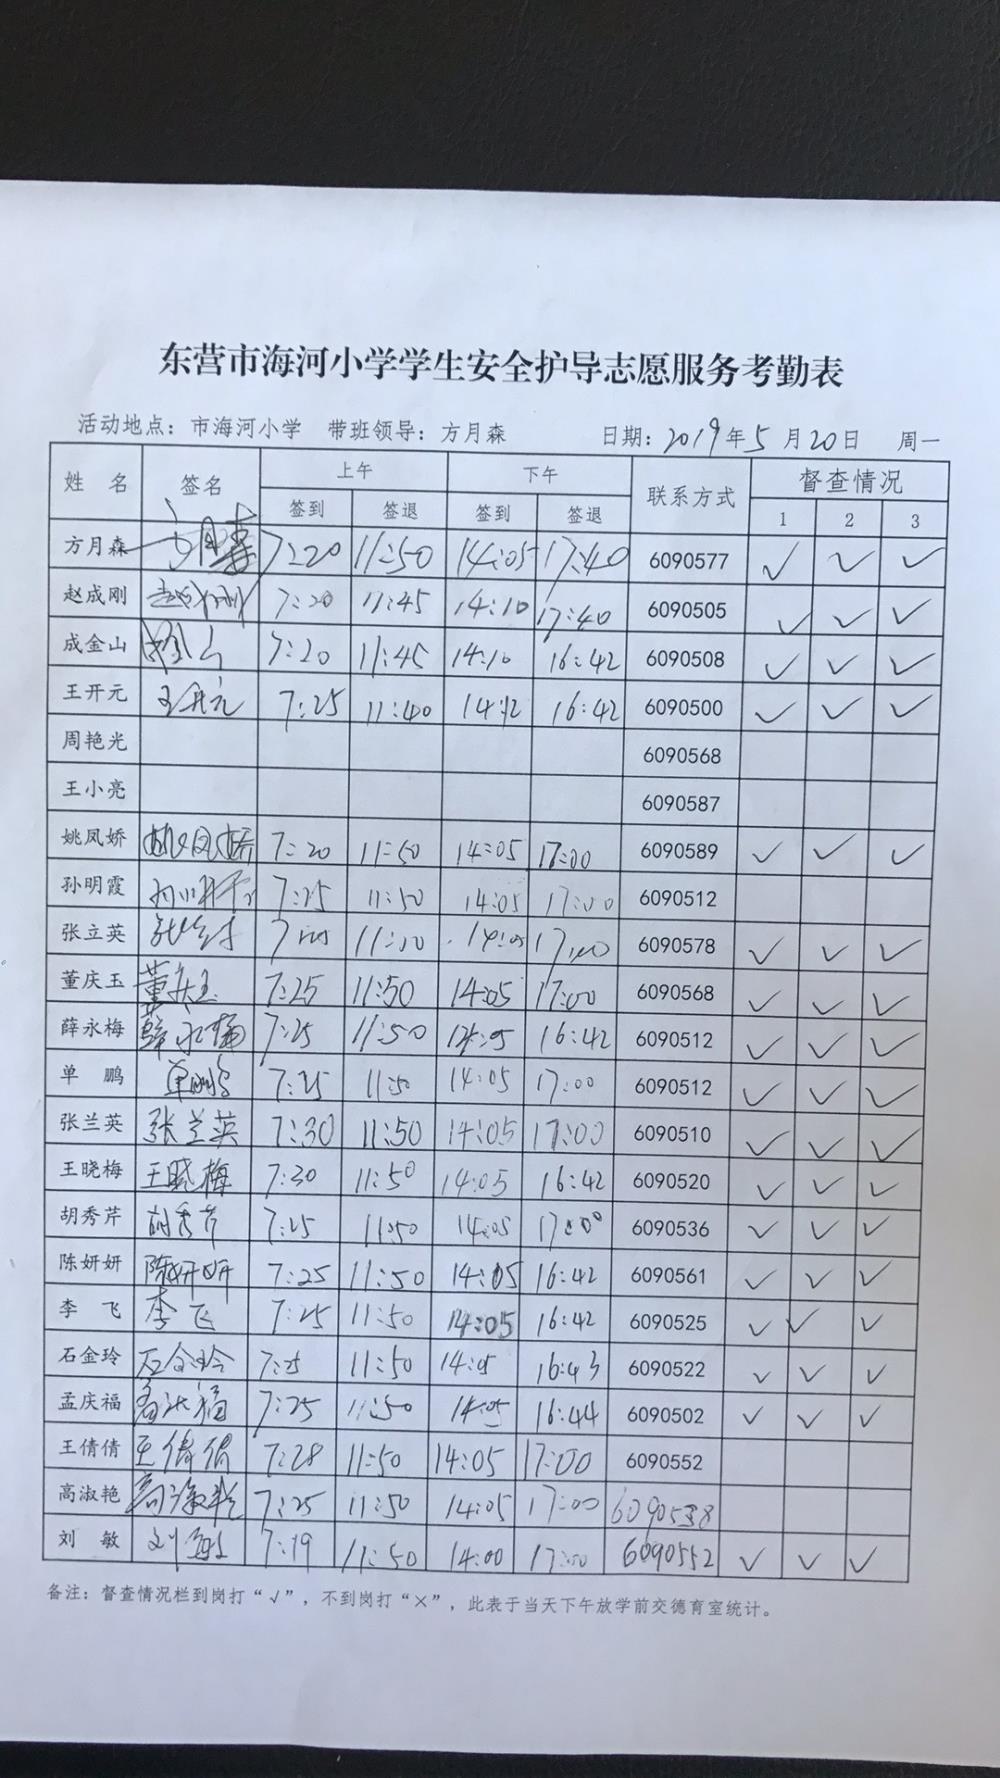 东营市海河小学学生安全护导志愿服务考勤表
活动地点：市海河小学 带班领导：方月森 日期：2019年5月20日 周一
姓 名 签名 上午 下午 联系方式 督查情况
签到 签退 签到 签退 1 2 3
方月森 7:20 11:50 14:05 17:40 6090577 ✓ ✓ ✓
赵成刚 赵成刚 7:20 11:45 14:10 17:40 6090505 ✓ ✓ ✓
成金山 成金山 7:20 11:45 14:10 16:42 6090508 ✓ ✓ ✓
王开元 王开元 7:25 11:40 14:12 16:42 6090500 ✓ ✓ ✓
周艳光 6090568
王小亮 6090587
姚凤娇 姚凤娇 7:20 11:50 14:05 17:00 6090589 ✓ ✓ ✓
孙明霞 7:25 11:50 14:05 17:00 6090512
张立英 14:05 17:00 6090578 ✓ ✓ ✓
董庆玉 董庆玉 7:25 11:50 14:05 17:00 6090568 ✓ ✓ ✓
薛永梅 薛永梅 7:25 11:50 14:05 16:42 6090512 ✓ ✓ ✓
单 鹏 单鹏 7:25 11:50 14:05 17:00 6090512 ✓ ✓ ✓
张兰英 张兰英 7:30 11:50 14:05 17:00 6090510 ✓ ✓ ✓
王晓梅 王晓梅 7:30 11:50 14:05 16:42 6090520 ✓ ✓ ✓
胡秀芹 胡秀芹 7:25 11:50 14:05 17:00 6090536 ✓ ✓ ✓
陈妍妍 陈妍妍 7:25 11:50 14:05 16:42 6090561 ✓ ✓ ✓
李 飞 李飞 7:25 11:50 14:05 16:42 6090525 ✓ ✓ ✓
石金玲 石金玲 7:25 11:50 14:05 16:43 6090522 ✓ ✓ ✓
孟庆福 孟庆福 7:25 11:50 14:05 16:44 6090502 ✓ ✓ ✓
王倩倩 王倩倩 7:28 11:50 14:05 17:00 6090552
高淑艳 高淑艳 7:25 11:50 14:05 17:00 6090538
刘 敏 刘敏 7:19 11:50 14:00 17:00 6090552 ✓ ✓ ✓
备注：督查情况栏到岗打“√”，不到岗打“×”，此表于当天下午放学前交德育室统计。